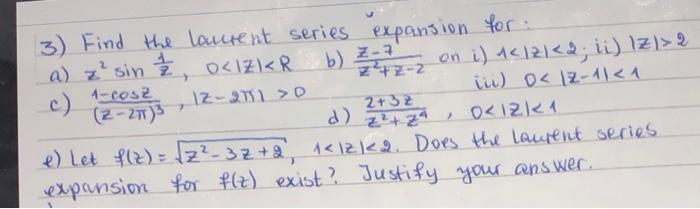 3) Find the laurent series expansion for:
a) z² sin 1/z, 0<|z|<R b) z-7/z²+z-2 on i) 1<|z|<2; ii) |z|>2
iii) 0<|z-1|<1
c) 1-cosz/(z-2π)³, |z-2π|>0 d) 2+3z/z²+z⁴, 0<|z|<1
e) Let f(z) = √z²-3z+2, 1<|z|<2. Does the laurent series
expansion for f(z) exist? Justify your answer.